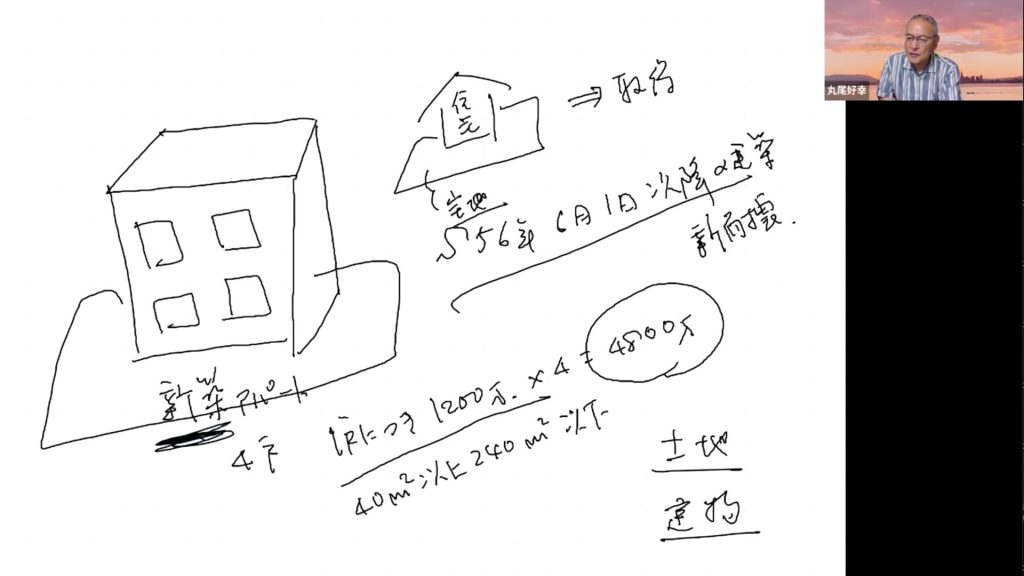 住宅
⇒取得
宅地
S56年6月1日以降の建築
新耐震.
新築アパート
4戸
1戸につき1200万.×4=4800万
40m²以上240m²以下
土地
建物
丸尾好幸